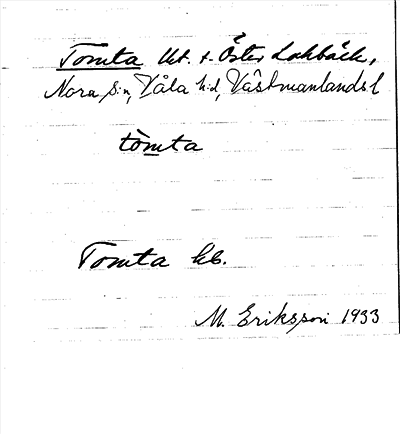 Tomta lht. t. Öster Lahbäck,
Nora s:n, Våla h:d, Västmanlands l
tòmta
Tomta hb.
M. Eriksson 1933